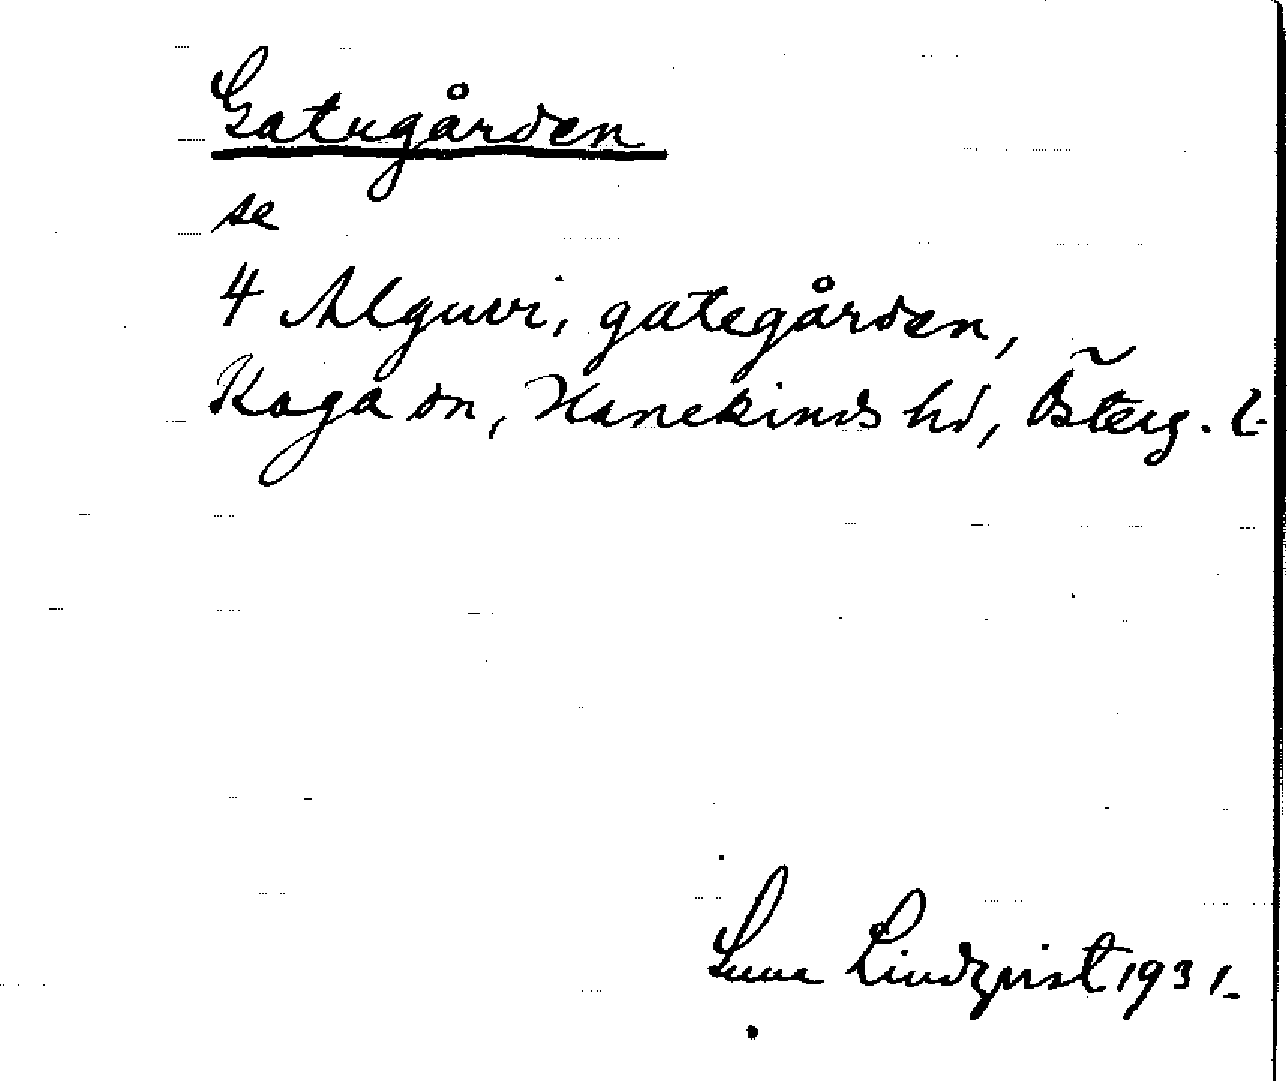 Gatugården
se
4 Alguvi, gategården,
Kaga sn, Hanekinds hd, Österg. l.
Lindqvist 1931.